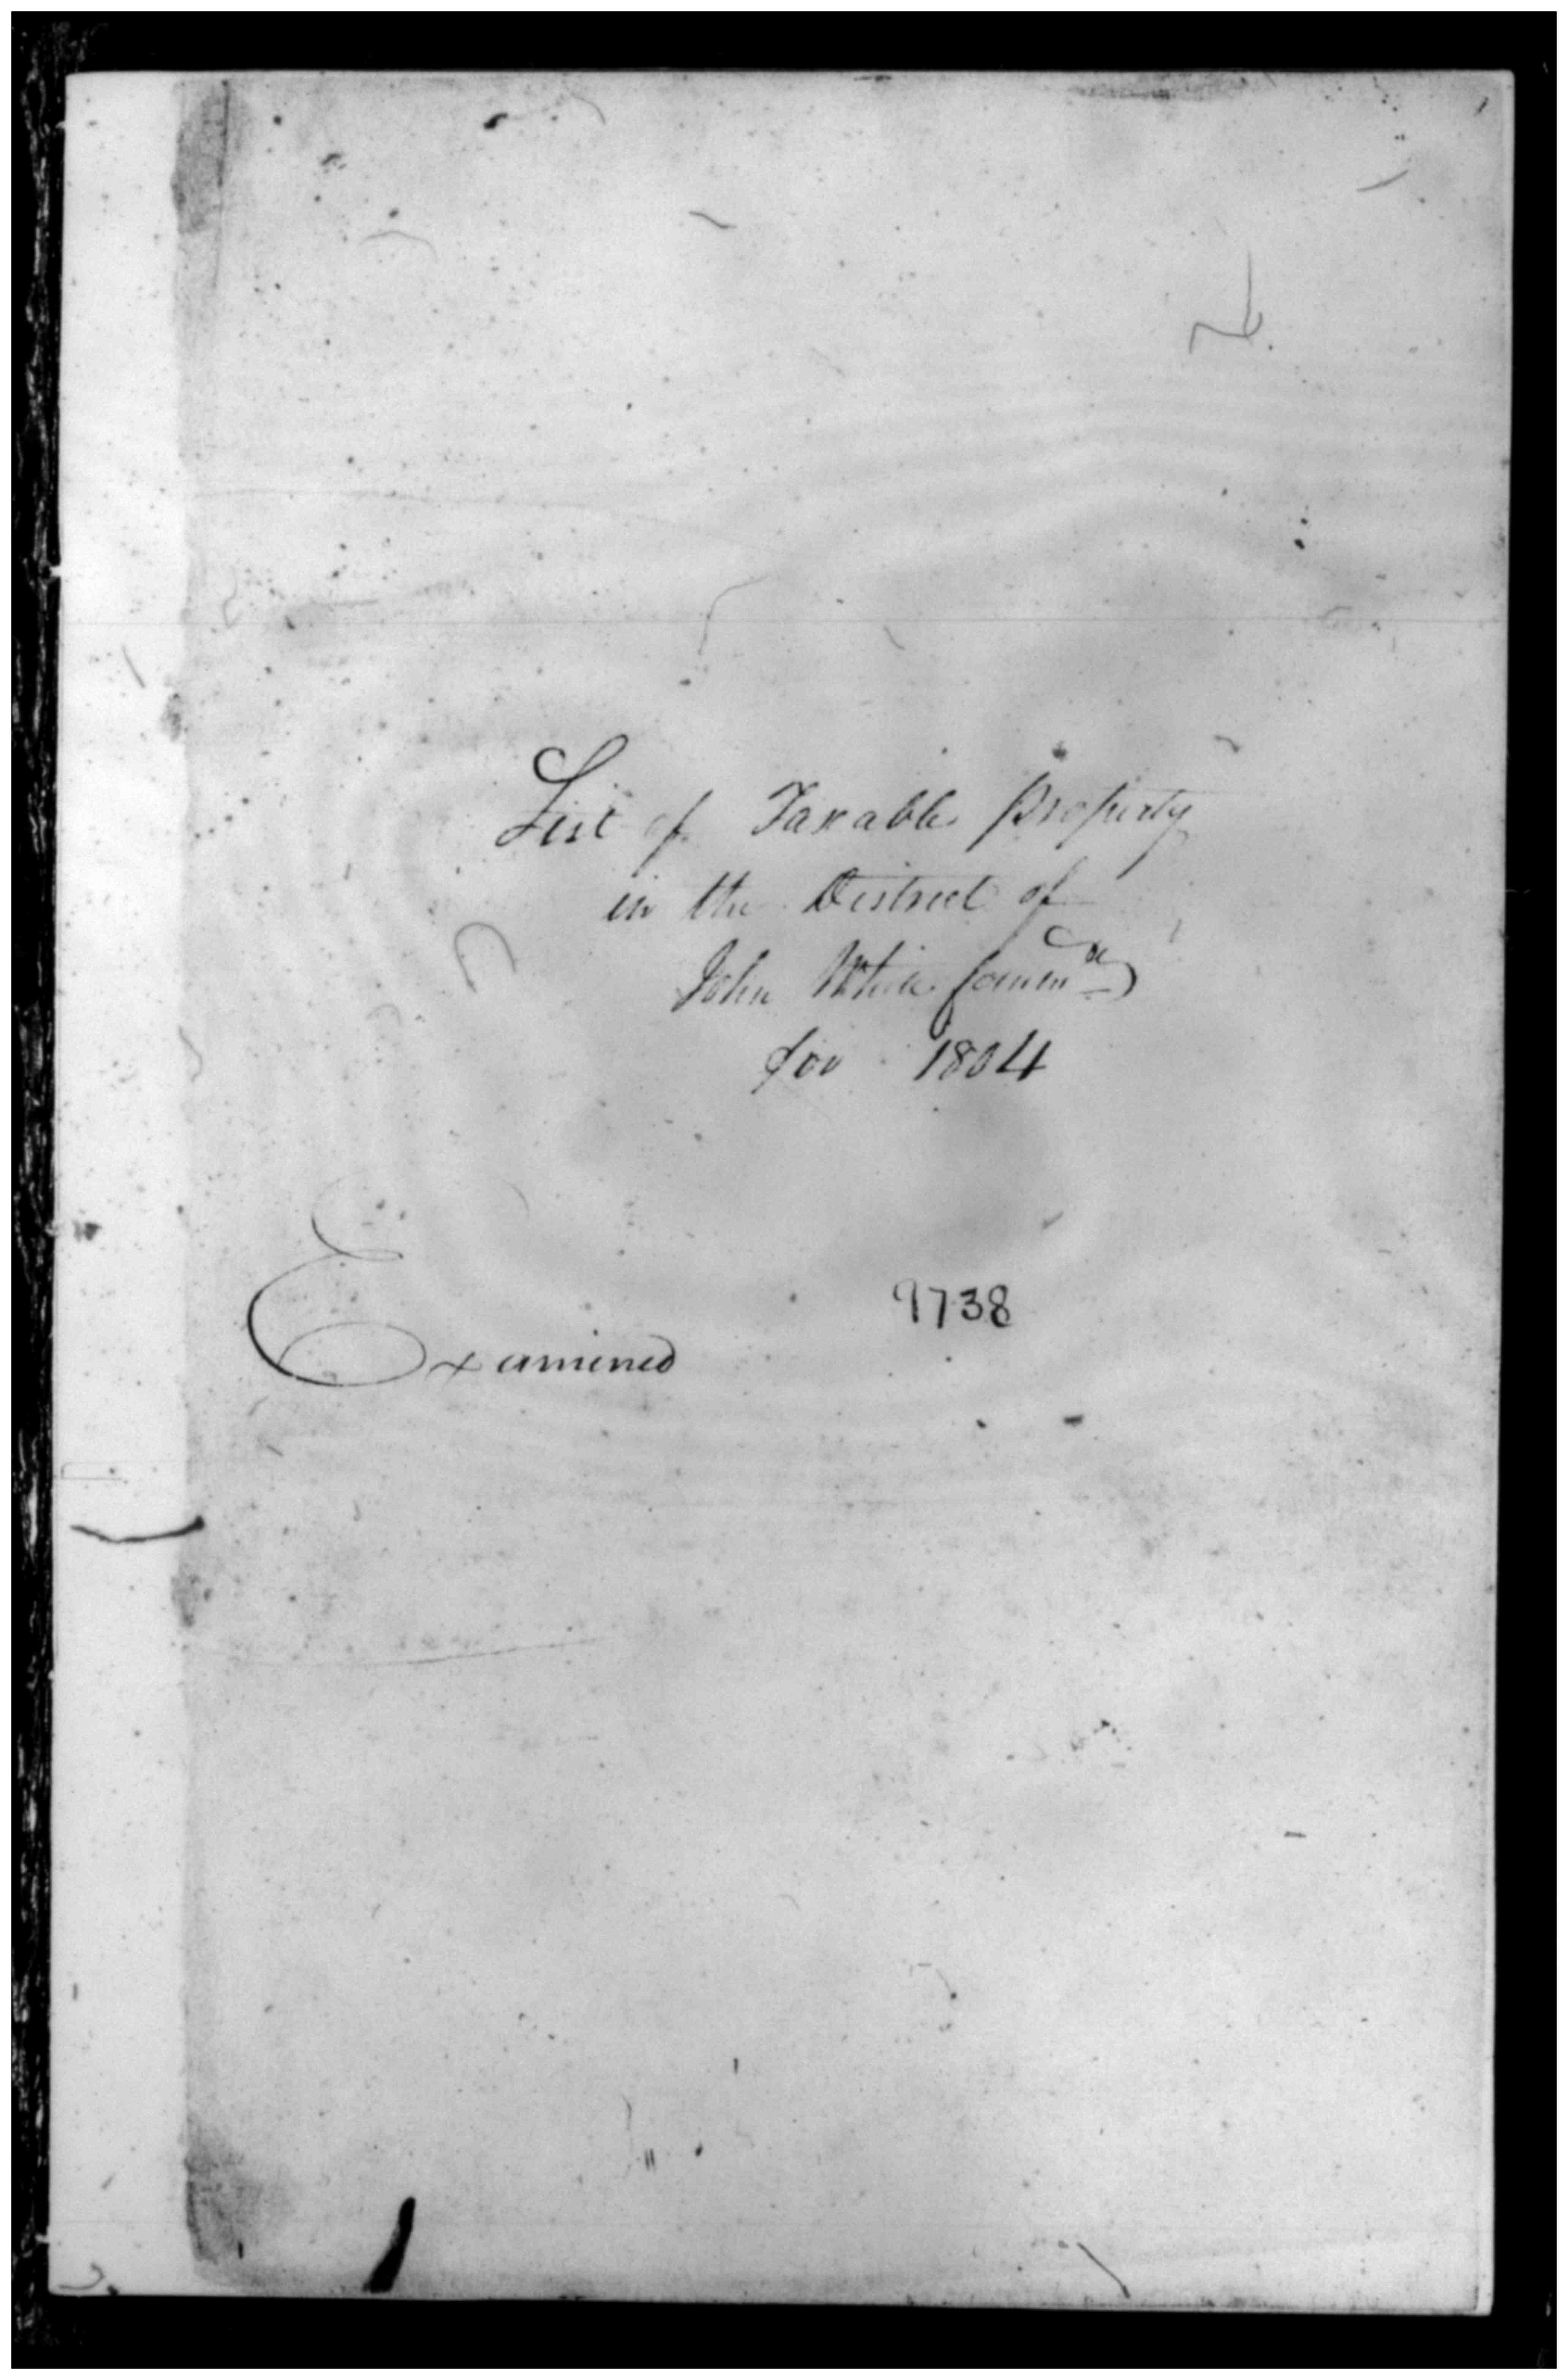 List of Taxable Property
in the District of
John White Comm^r
for 1804
9738
Examined